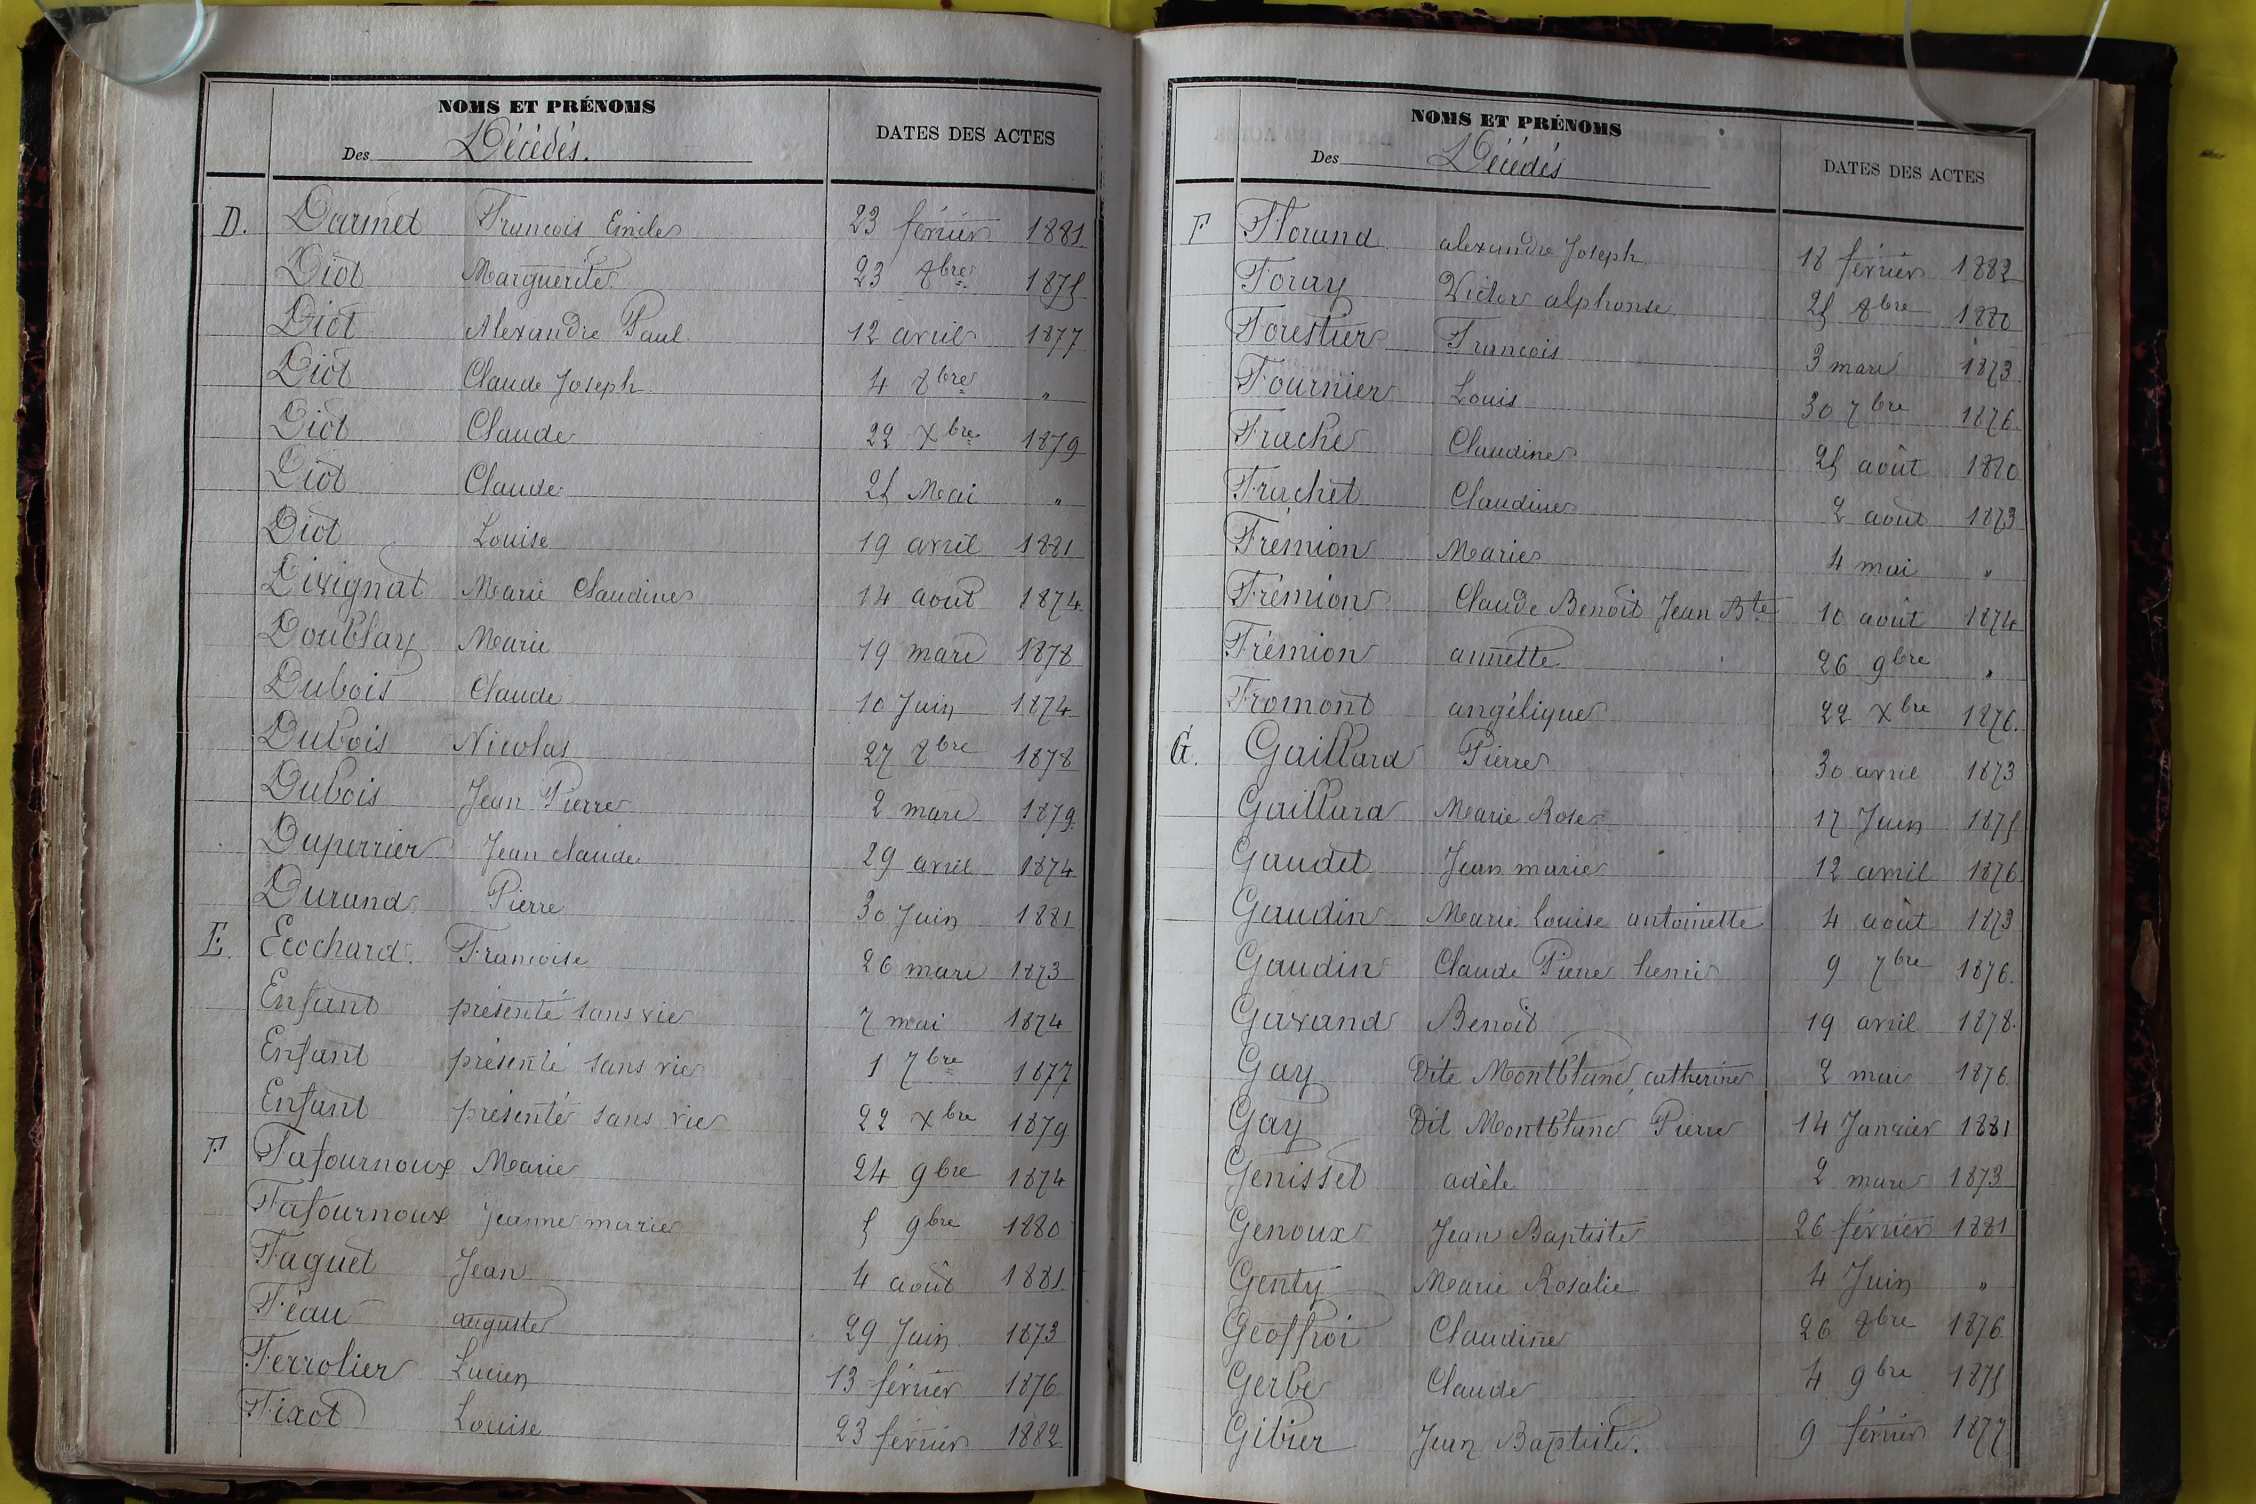 NOMS ET PRÉNOMS
Des Décédés.
DATES DES ACTES
D. Darmet François Emile 23 février 1881
Diot Marguerite 23 8bre 1875
Diot Alexandre Paul 12 avril 1877
Diot Claude Joseph 4 8bre "
Diot Claude 22 Xbre 1879
Diot Claude 25 Mai "
Diot Louise 19 avril 1881
Divignat Marie Claudine 14 août 1874
Doublay Marie 19 mars 1878
Dubois Claude 10 Juin 1874
Dubois Nicolas 27 8bre 1878
Dubois Jean Pierre 2 mars 1879
Duperrier Jean claude 29 avril 1874
Durand Pierre 30 Juin 1881
E. Ecochard Françoise 26 mars 1873
Enfant présenté sans vie 7 mai 1874
Enfant présenté sans vie 1 7bre 1877
Enfant présenté sans vie 22 Xbre 1879
F Fafournoux Marie 24 9bre 1874
Fafournoux Jeanne marie 5 9bre 1880
Faguet Jean 4 août 1881
Féau auguste 29 Juin 1873
Ferrolier Lucien 13 février 1876
Fixot Louise 23 février 1882
NOMS ET PRÉNOMS
Des Décédés
DATES DES ACTES
F Florand alexandre Joseph 18 février 1882
Foray Victor alphonse 25 8bre 1880
Forestier François 3 mars 1873
Fournier Louis 30 7bre 1876
Frache Claudine 25 août 1880
Frachet Claudine 2 août 1873
Frémion Marie 4 mai "
Frémion Claude Benoît Jean Bte 10 août 1874
Frémion annette 26 9bre "
Fromont angélique 22 Xbre 1876.
G. Gaillard Pierre 30 avril 1873
Gaillard Marie Rose 17 Juin 1875
Gaudet Jean marie 12 avril 1876
Gaudin Marie Louise antoinette 4 août 1873
Gaudin Claude Pierre henri 9 7bre 1876.
Gavand Benoit 19 avril 1878.
Gay Dite Montbland catherine 2 mai 1876
Gay Dit Montbland Pierre 14 Janvier 1881
Genisset adèle 2 mars 1873
Genoux Jean Baptiste 26 février 1881
Genty Marie Rosalie 4 Juin "
Geoffroi Claudine 26 8bre 1876
Gerbe Claude 4 9bre 1875
Gibier Jean Baptiste. 9 février 1877